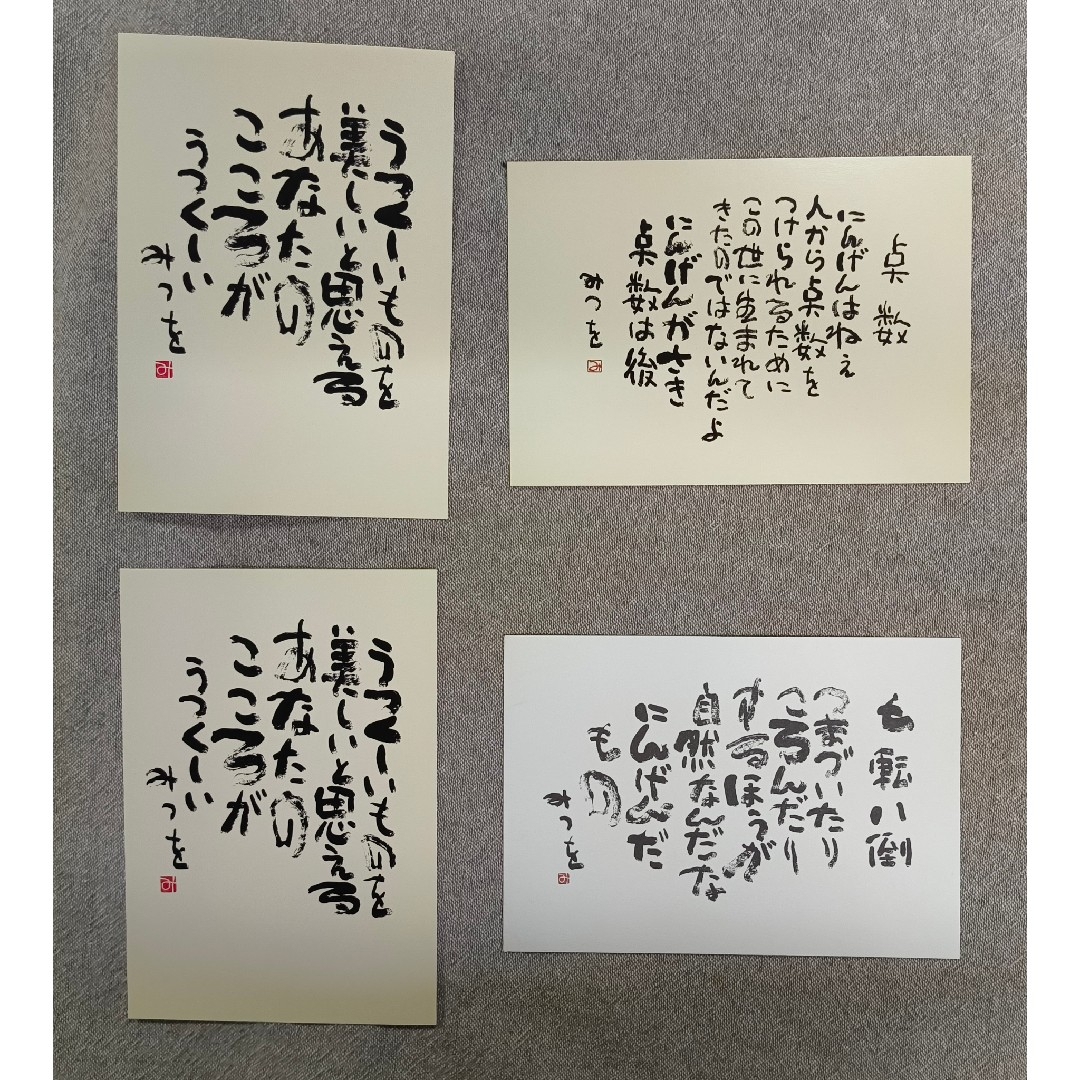 うつくしいものを
美しいと思える
あなたの
こころが
うつくしい
みつを
み
点数
にんげんはねぇ
人から点数を
つけられるために
この世に生まれて
きたのではないんだよ
にんげんがさき
点数は後
みつを
み
うつくしいものを
美しいと思える
あなたの
こころが
うつくしい
みつを
み
七転八倒
つまづいたり
ころんだり
するほうが
自然なんだな
にんげんだ
もの
みつを
み